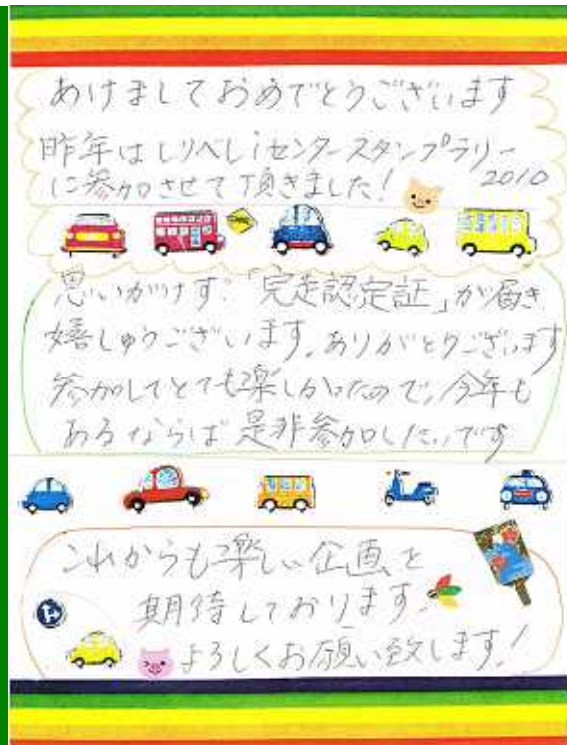 あけましておめでとうございます
昨年はしりべしiセンタースタンプラリー
に参加させて頂きました!
2010
思いがけず「完走認定証」が届き
嬉しゅうございます。ありがとうございます
参加してとても楽しかったので、今年も
あるならば是非参加したいです
これからも楽しい企画を
期待しております。
よろしくお願い致します!